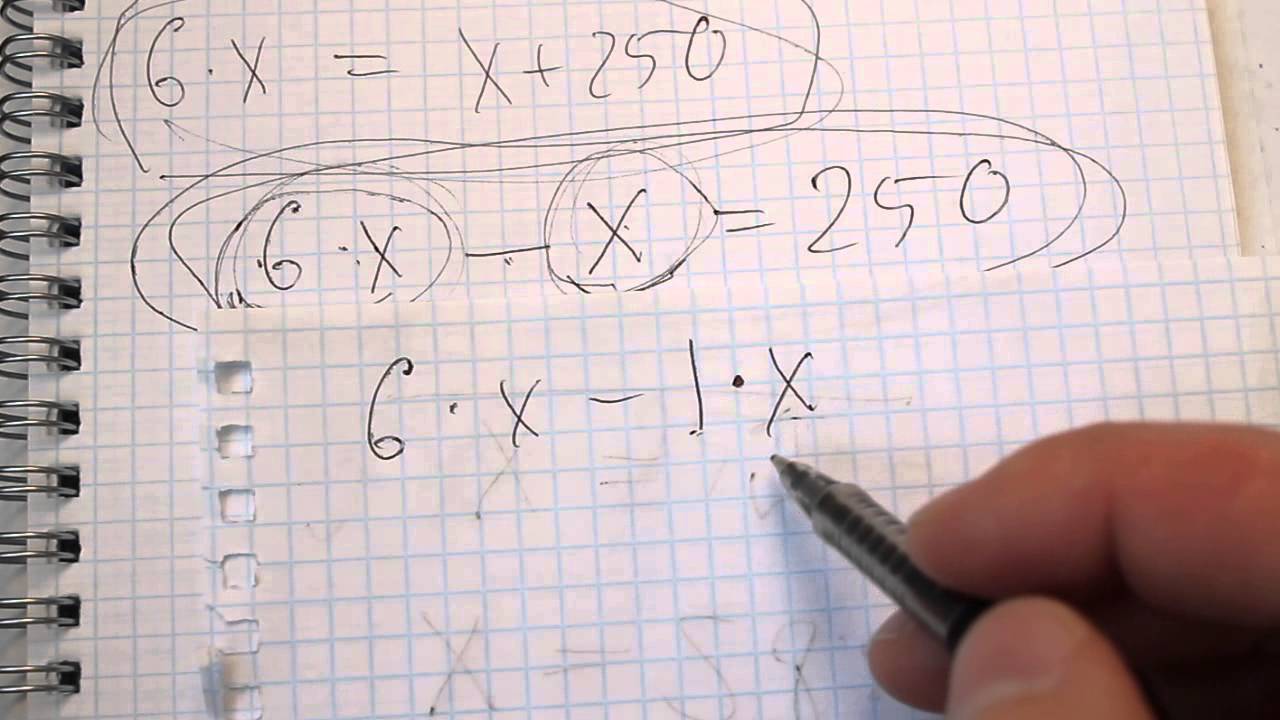 6·x = x+250
6·x - x = 250
6·x - 1·x
x = 58